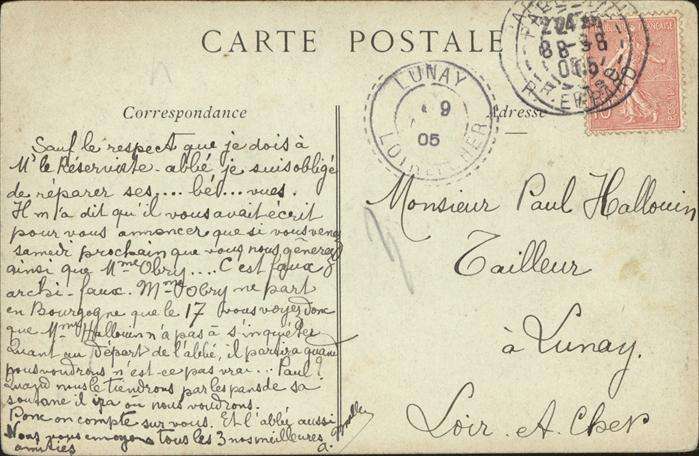 CARTE POSTALE
Correspondance
Sauf le respect que je dois à
Mr le Réserviste-abbé je suis obligé
de réparer ses... bé... vues.
Il m'a dit qu'il vous avait écrit
pour vous annoncer que si vous venez
samedi prochain que vous nous gênerez
ainsi que Mme Obry.... C'est faux &
archi-faux. Mme Obry ne part
en Bourgogne que le 17 vous voyez donc
que Mme Hallouin n'a pas à s'inquiéter
Quant au départ de l'abbé, il partira quand
nous voudrons n'est-ce pas vrai... Paul!
Quand nous le tiendrons par les pans de sa
soutane il ira où nous voudrons.
Donc on compte sur vous. Et l'abbé aussi
Nous vous envoyons tous les 3 nos meilleures
amitiés
A.
Adresse
Monsieur Paul Hallouin
Tailleur
à Lunay.
Loir-et-Cher
LUNAY
9
05
LOIR-ET-CHER
PARIS
8-9
05
FRANÇAISE
10